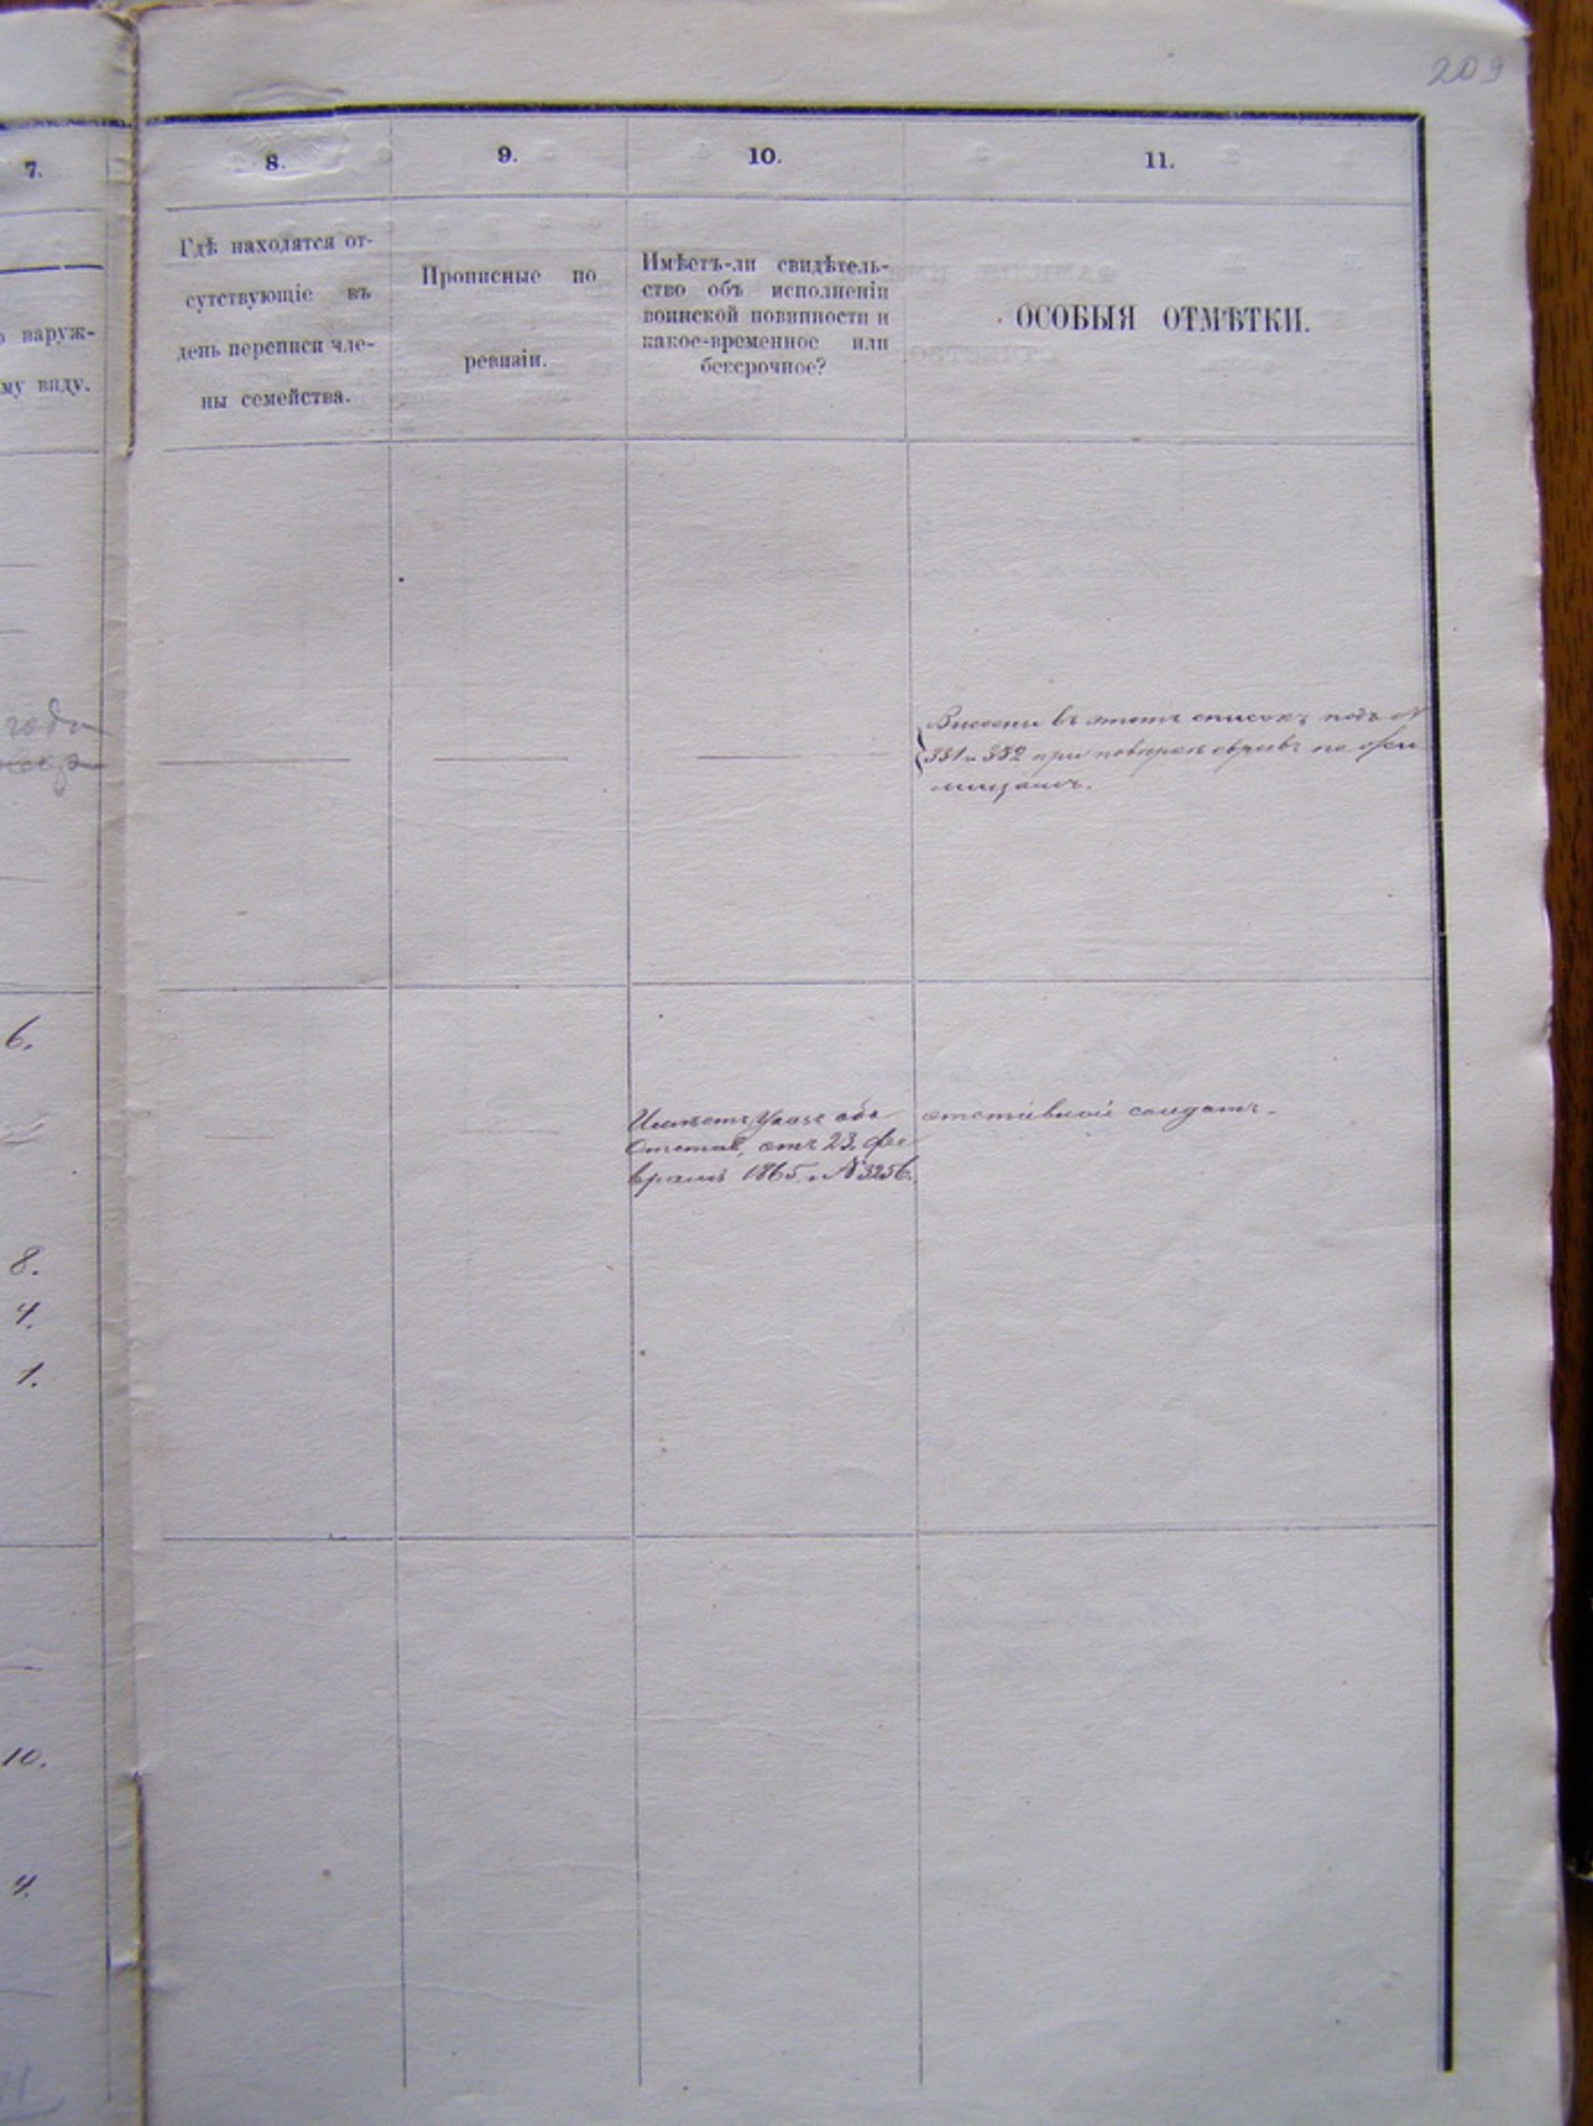 209
7.
8.
9.
10.
11.
наруж-
му виду.
Гдѣ находятся от-
сутствующіе въ
день переписи чле-
ны семейства.
Прописные по
ревизіи.
Имѣетъ-ли свидѣтель-
ство объ исполненіи
воинской повинности и
какое-временное или
безсрочное?
ОСОБЫЯ ОТМѢТКИ.
года
Внесены въ этотъ списокъ подъ №
331 и 332 при повѣркѣ евреевъ по
6.
Имѣетъ Указъ объ
Отстав, отъ 23. фе
враля 1865 № 3256.
отставной солдатъ.
8.
4.
1.
10.
4.